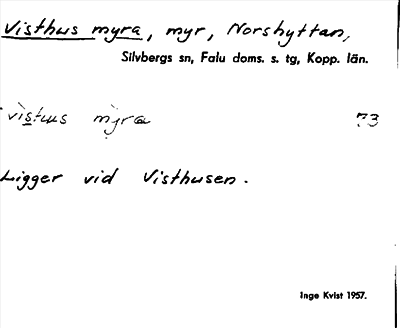 Visthus myra, myr, Norshyttan,
Silvbergs sn, Falu doms. s. tg, Kopp. län.
73
Ligger vid Visthusen.
Inge Kvist 1957.